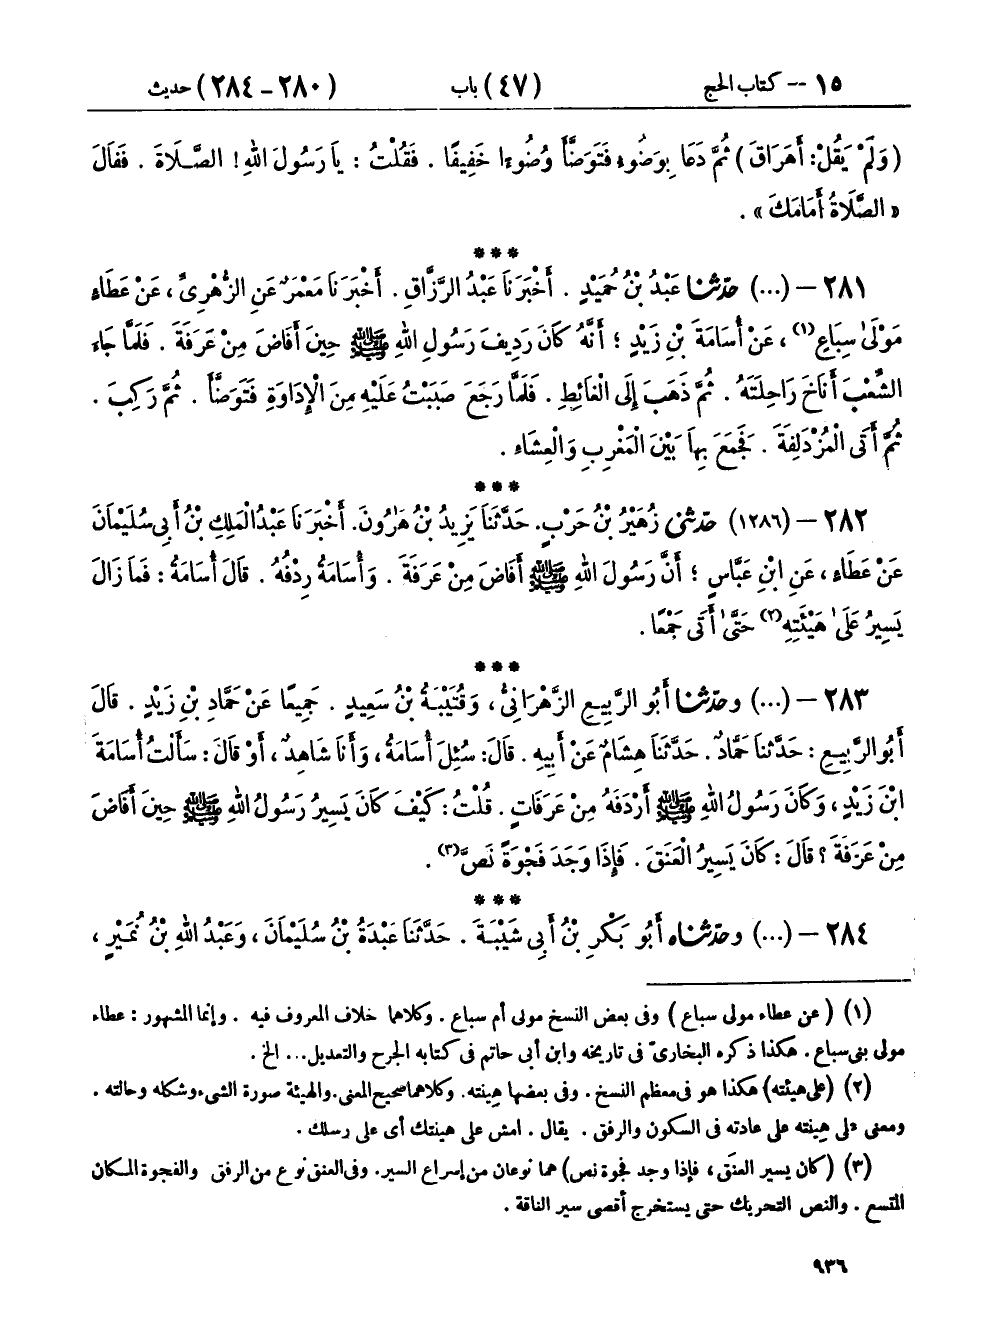 ١٥ -- كتاب الحج (٤٧) باب (٢٨٠-٢٨٤) حديث
(وَلَمْ يَقُلْ: أَهَرَاقَ) ثُمَّ دَعَا بِوَضُوءٍ فَتَوَضَّأَ وُضُوءًا خَفِيفًا . فَقُلْتُ : يَا رَسُولَ اللهِ ! الصَّلَاةَ . فَقَالَ
« الصَّلَاةُ أَمَامَكَ » .
***
٢٨١ – (...) حَدَّثَنَا عَبْدُ بْنُ حُمَيْدٍ . أَخْبَرَنَا عَبْدُ الرَّزَّاقِ . أَخْبَرَنَا مَعْمَرٌ عَنِ الزُّهْرِىِّ ، عَنْ عَطَاءٍ
مَوْلَىٰ سِبَاعٍ(١) ، عَنْ أُسَامَةَ بْنِ زَيْدٍ ؛ أَنَّهُ كَانَ رَدِيفَ رَسُولِ اللهِ ﷺ حِينَ أَفَاضَ مِنْ عَرَفَةَ . فَلَمَّا جَاءَ
الشِّعْبَ أَنَاخَ رَاحِلَتَهُ . ثُمَّ ذَهَبَ إِلَى الْغَائِطِ . فَلَمَّا رَجَعَ صَبَبْتُ عَلَيْهِ مِنَ الْإِدَاوَةِ فَتَوَضَّأَ . ثُمَّ رَكِبَ .
ثُمَّ أَتَى الْمُزْدَلِفَةَ . فَجَمَعَ بِهَا بَيْنَ الْمَغْرِبِ وَالْعِشَاءِ .
***
٢٨٢ – (١٢٨٦) حَدَّثَنِى زُهَيْرُ بْنُ حَرْبٍ. حَدَّثَنَا يَزِيدُ بْنُ هَارُونَ. أَخْبَرَنَا عَبْدُ الْمَلِكِ بْنُ أَبِى سُلَيْمَانَ
عَنْ عَطَاءٍ ، عَنِ ابْنِ عَبَّاسٍ ؛ أَنَّ رَسُولَ اللهِ ﷺ أَفَاضَ مِنْ عَرَفَةَ . وَأُسَامَةُ رِدْفُهُ . قَالَ أُسَامَةُ : فَمَا زَالَ
يَسِيرُ عَلَىٰ هَيْئَتِهِ(٢) حَتَّىٰ أَتَى جَمْعًا .
***
٢٨٣ – (...) وحَدَّثَنَا أَبُو الرَّبِيعِ الزَّهْرَانِىُّ ، وَقُتَيْبَةُ بْنُ سَعِيدٍ . جَمِيعًا عَنْ حَمَّادِ بْنِ زَيْدٍ . قَالَ
أَبُو الرَّبِيعِ : حَدَّثَنَا حَمَّادٌ . حَدَّثَنَا هِشَامٌ عَنْ أَبِيهِ . قَالَ: سُئِلَ أُسَامَةُ ، وَأَنَا شَاهِدٌ ، أَوْ قَالَ : سَأَلْتُ أُسَامَةَ
ابْنَ زَيْدٍ ، وَكَانَ رَسُولُ اللهِ ﷺ أَرْدَفَهُ مِنْ عَرَفَاتٍ . قُلْتُ : كَيْفَ كَانَ يَسِيرُ رَسُولُ اللهِ ﷺ حِينَ أَفَاضَ
مِنْ عَرَفَةَ ؟ قَالَ : كَانَ يَسِيرُ الْعَنَقَ . فَإِذَا وَجَدَ فَجْوَةً نَصَّ(٣) .
***
٢٨٤ – (...) وحَدَّثَنَاه أَبُو بَكْرِ بْنُ أَبِى شَيْبَةَ . حَدَّثَنَا عَبْدَةُ بْنُ سُلَيْمَانَ ، وَعَبْدُ اللهِ بْنُ نُمَيْرٍ ،
(١) (عن عطاء مولى سباع) وفى بعض النسخ مولى أم سباع . وكلاهما خلاف المعروف فيه . وإنما المشهور : عطاء
مولى بنى سباع . هكذا ذكره البخارىّ فى تاريخه وابن أبى حاتم فى كتابه الجرح والتعديل... الخ .
(٢) (على هيئته) هكذا هو فى معظم النسخ . وفى بعضها هِينته. وكلاهما صحيح المعنى. والهيئة صورة الشىء وشكله وحالته .
ومعنى على هِينته على عادته فى السكون والرفق . يقال . امش على هينتك أى على رسلك .
(٣) (كان يسير العنَق ، فإذا وجد فجوة نص) هما نوعان من إسراع السير. وفى العنق نوع من الرفق والفجوة المكان
المتسع . والنص التحريك حتى يستخرج أقصى سير الناقة .
٩٣٦